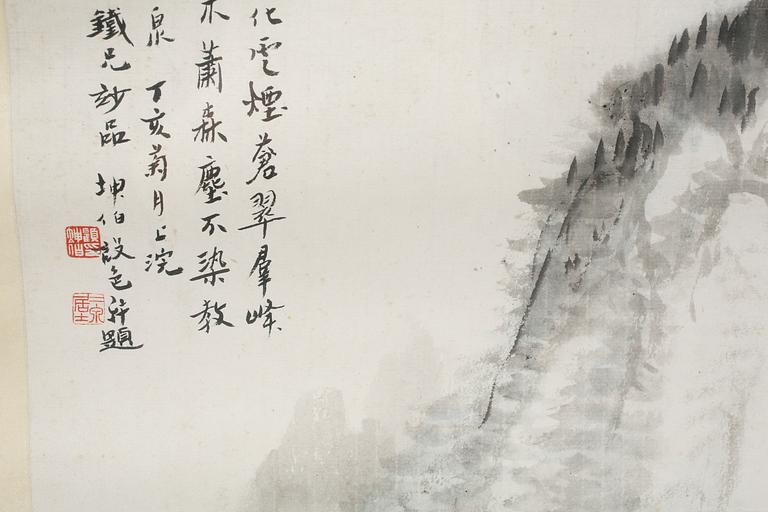 化雲煙蒼翠羣峰
木蕭森塵不染教
泉 丁亥菊月上浣
鐵兄妙品 坤伯設色并題